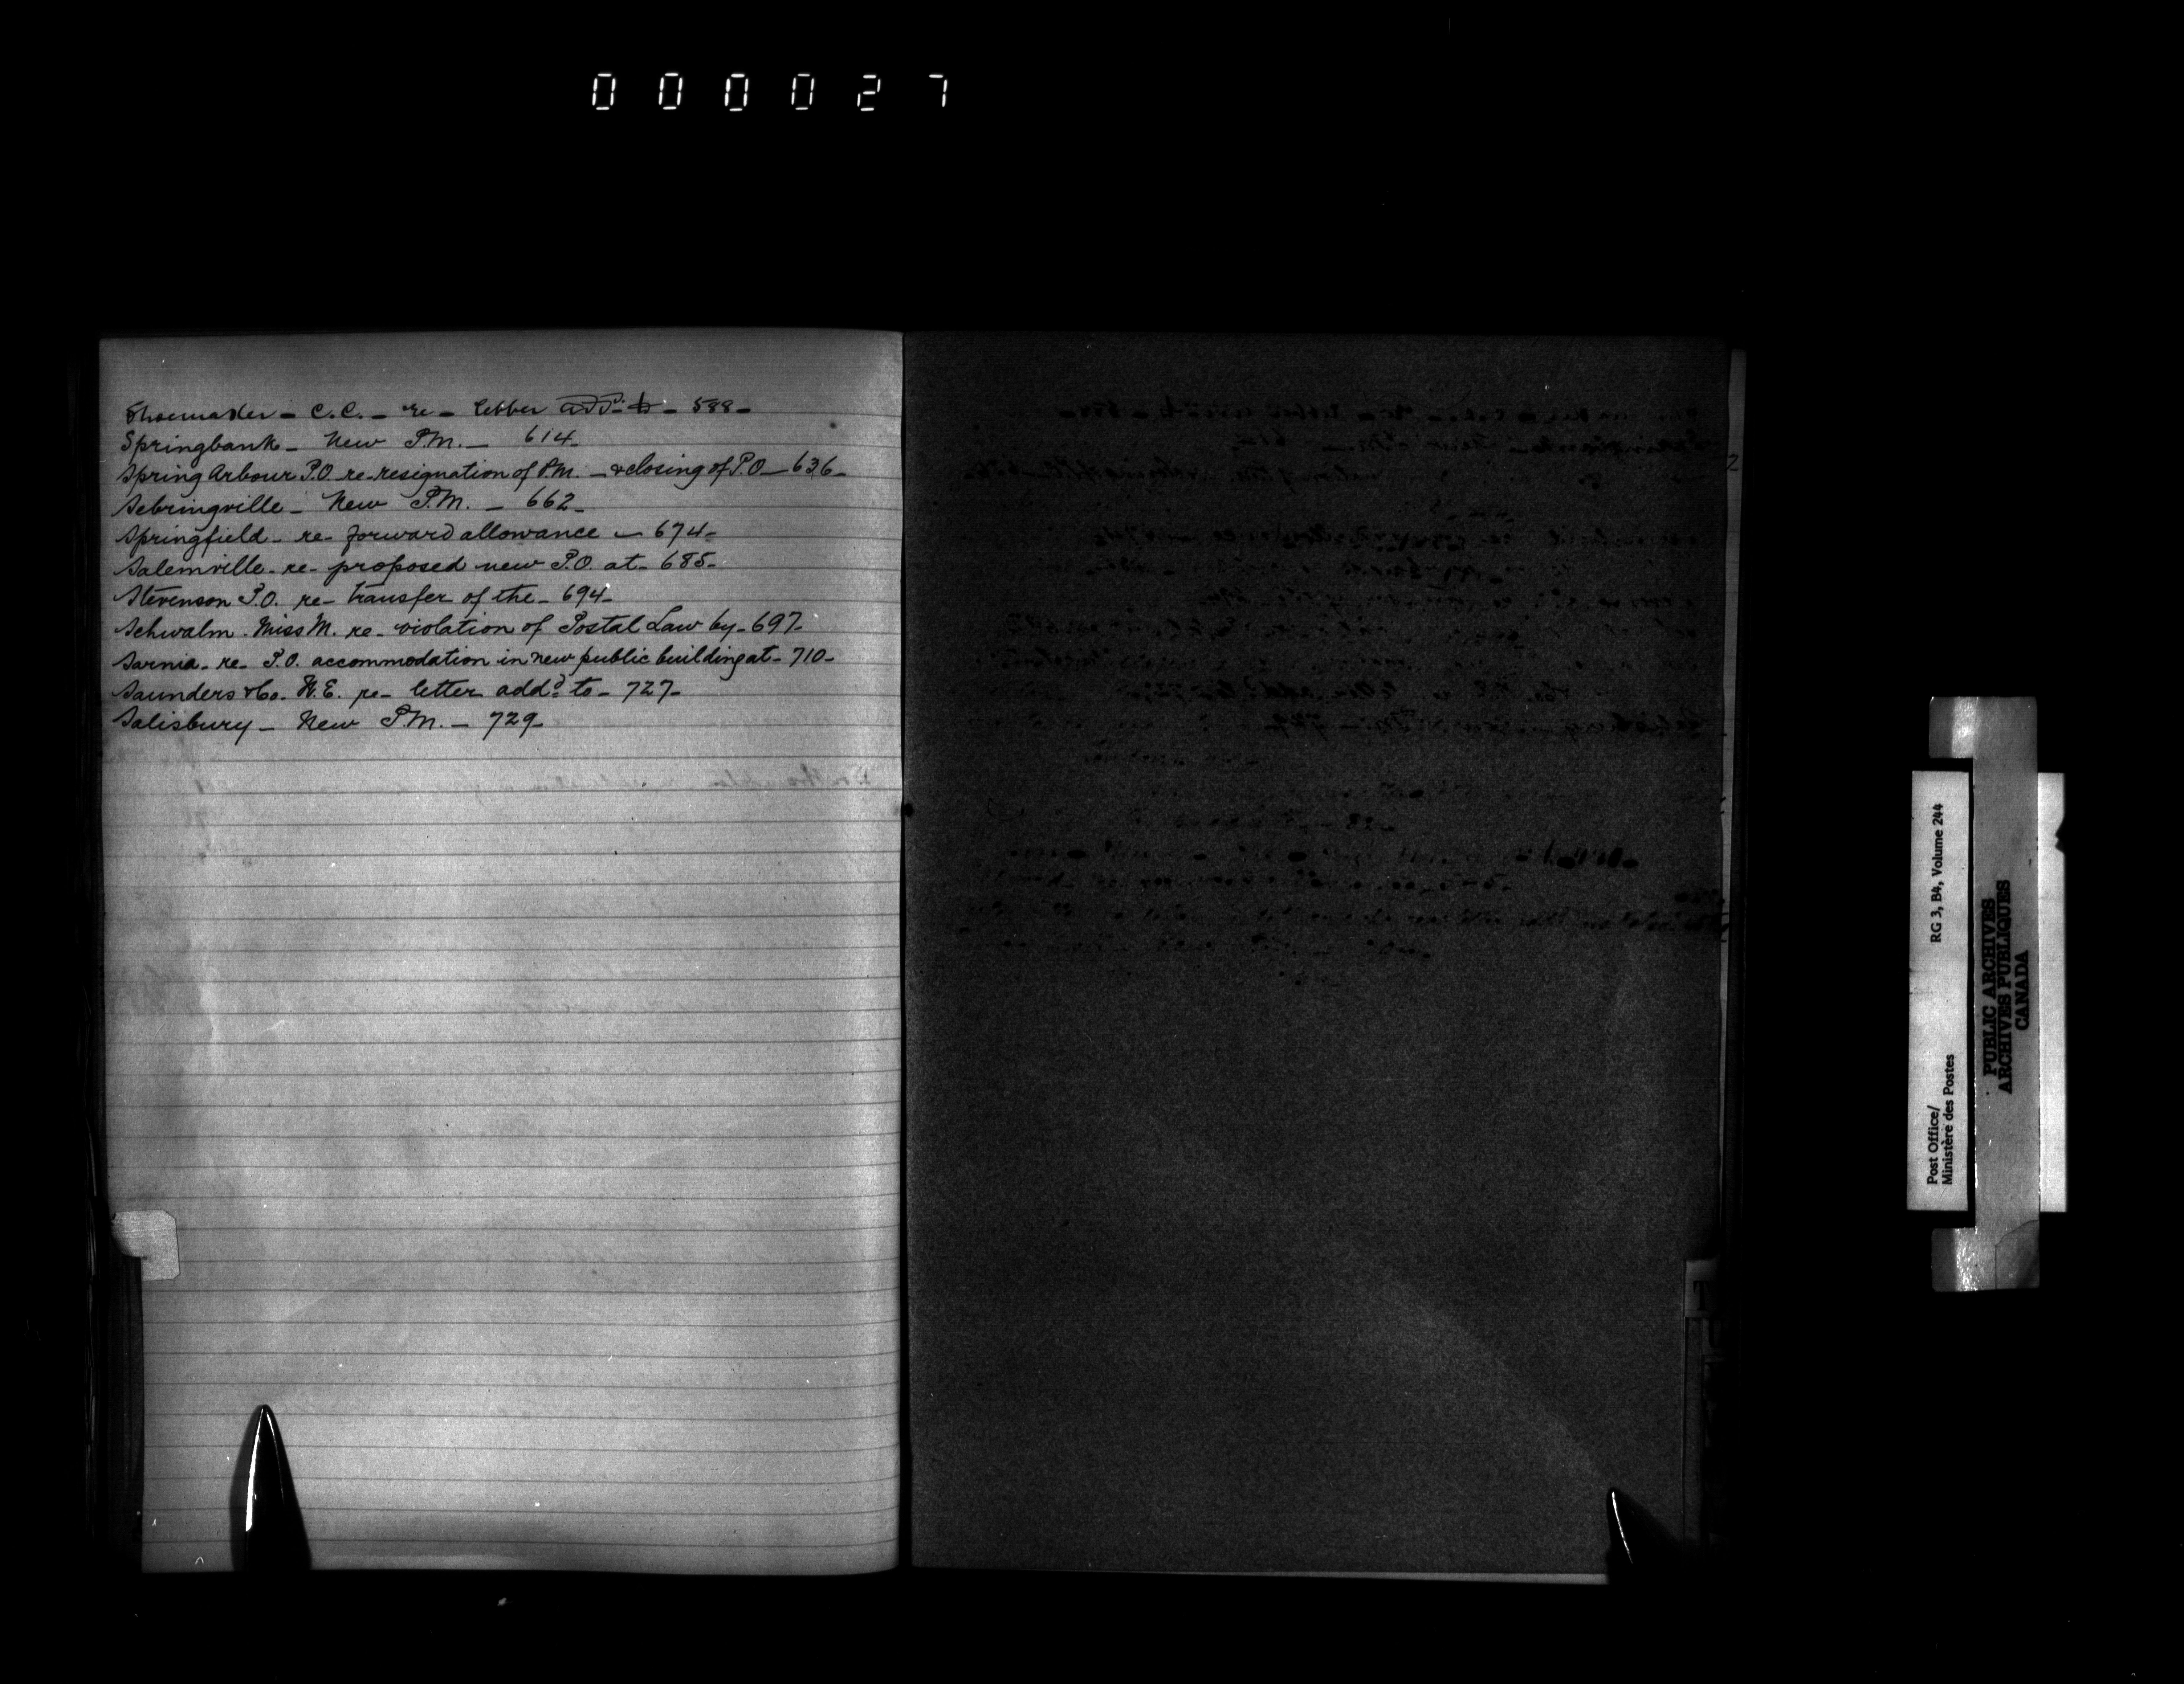 000027
Shoemaker - C.C. - re - letter add.d to - 588 -
Springbank - New P.M. - 614 -
Spring Arbour P.O. re - resignation of P.M. - & closing of P.O. - 636 -
Sebringville - New P.M. - 662 -
Springfield - re - forward allowance - 674 -
Salemville - re - proposed new P.O. at - 685 -
Stevenson P.O. re - transfer of the - 694 -
Schwalm - Miss M. re - violation of Postal Law by - 697 -
Sarnia - re - P.O. accommodation in new public building at - 710 -
Saunders & Co. W.E. re - letter add.d to - 727 -
Salisbury - New P.M. - 729 -
T
U
Post Office/ RG 3, B4, Volume 244
Ministère des Postes
PUBLIC ARCHIVES
ARCHIVES PUBLIQUES
CANADA